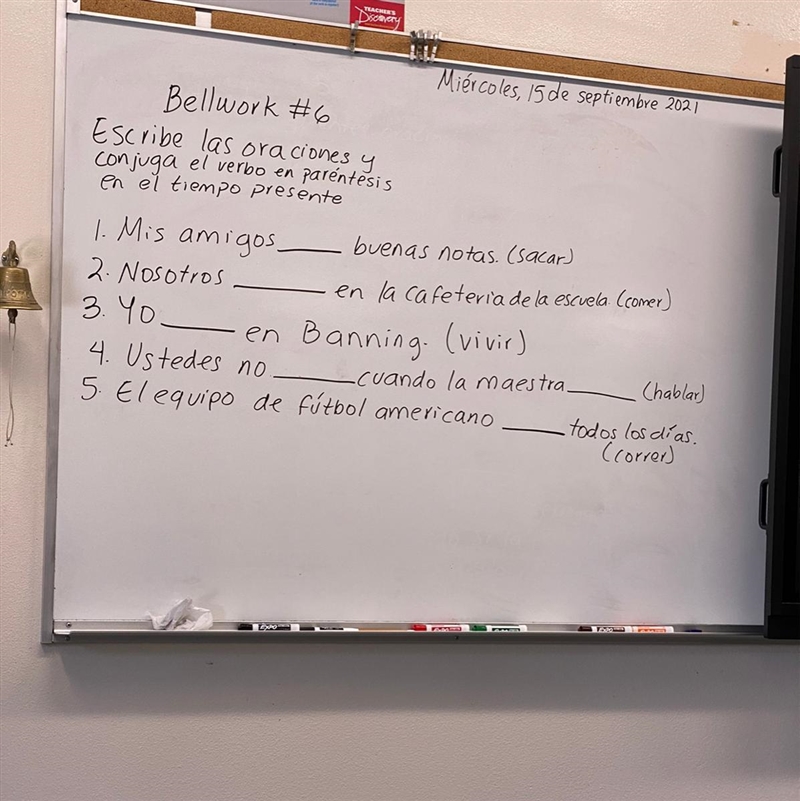 TEACHER'S
Discovery
Miércoles, 15 de septiembre 2021
Bellwork #6
Escribe las oraciones y
conjuga el verbo en paréntesis
en el tiempo presente
1. Mis amigos_____ buenas notas. (sacar)
2. Nosotros _______ en la cafeteria de la escuela. (comer)
3. Yo ______ en Banning. (vivir)
4. Ustedes no ______cuando la maestra_____ (hablar)
5. El equipo de fútbol americano _____ todos los días.
(correr)
EXPO